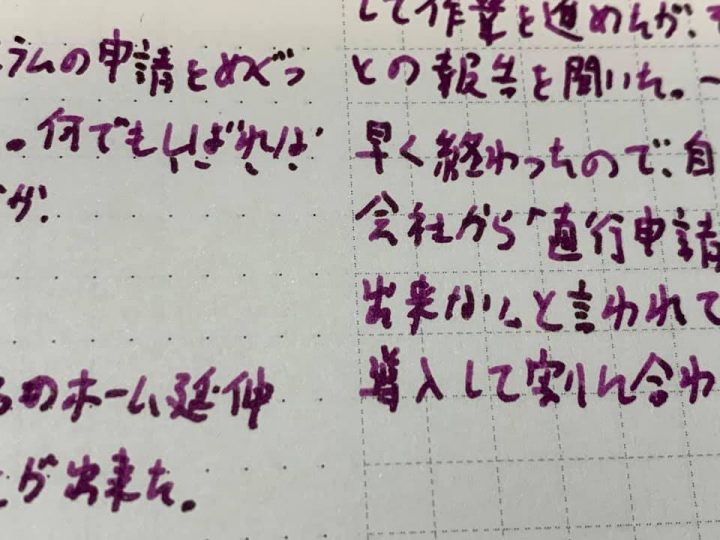 ラムの申請をめぐっ
。何でもしばれば
か。
のホーム延伸
が出来た。
して作業を進めんが、
との報告を聞いた。
早く終わったので、自
会社から"直行申請
出来ない"と言われて
導入して割に合わ